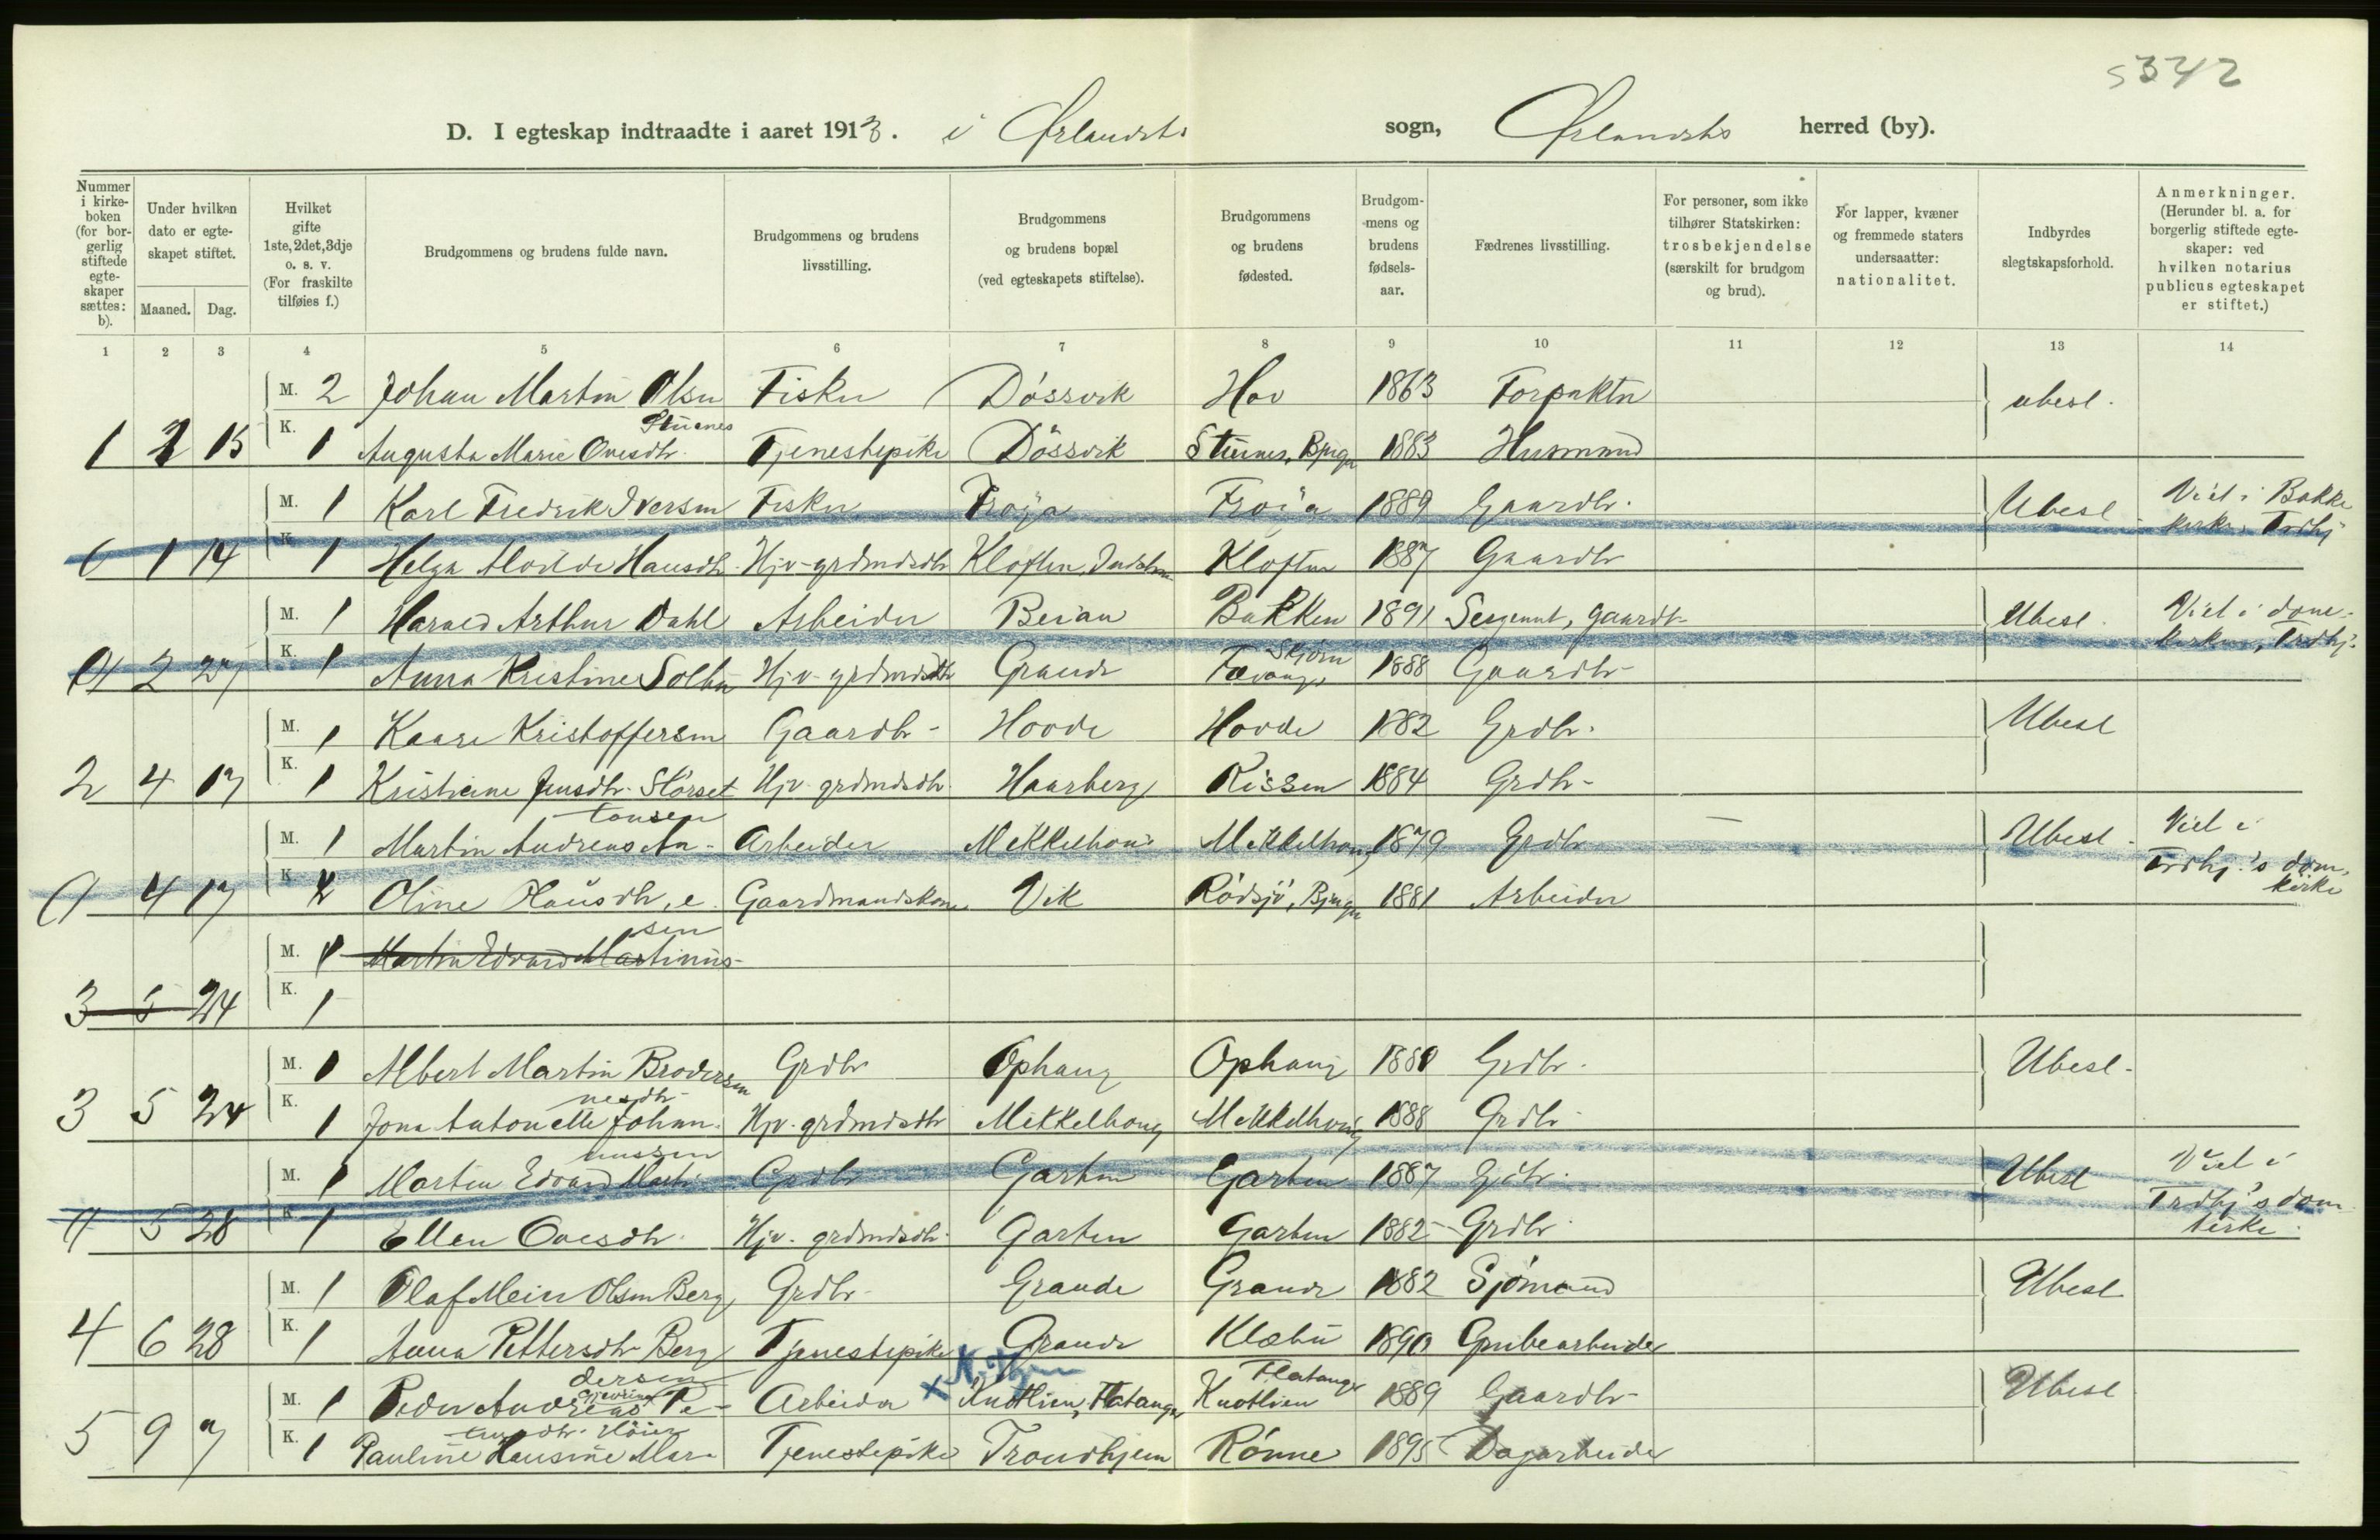 5342
D. I egteskap indtraadte i aaret 1913. i Ørlandets sogn, Ørlandets herred (by).
Nummer i kirkeboken (for borgerlig stiftede egteskaper sættes: b).
Under hvilken dato er egteskapet stiftet.
Maaned. Dag.
Hvilket gifte 1ste, 2det, 3dje o. s. v. (For fraskilte tilføies f.)
Brudgommens og brudens fulde navn.
Brudgommens og brudens livsstilling.
Brudgommens og brudens bopæl (ved egteskapets stiftelse).
Brudgommens og brudens fødested.
Brudgommens og brudens fødselsaar.
Fædrenes livsstilling.
For personer, som ikke tilhører Statskirken: trosbekjendelse (særskilt for brudgom og brud).
For lapper, kvæner og fremmede staters undersaatter: nationalitet.
Indbyrdes slegtskapsforhold.
Anmerkninger. (Herunder bl. a. for borgerlig stiftede egteskaper: ved hvilken notarius publicus egteskapet er stiftet.)
1 2 3 4 5 6 7 8 9 10 11 12 13 14
M. 2 Johan Martin Olsen Fisker Døssvik Hov 1863 Forpakter ubesl.
1 2 15 K. 1 Augusta Marie Ovesdtr. Stuenes Tjenestepike Døssvik Stuenes, Bjugn 1883 Husmand
M. 1 Karl Fredrik Iversen Fisker Frøya Frøia 1889 Gaardbr. Ubesl. Viet i Bakke kirke, Trdhj.
1 14 K. 1 Helga Hansdtr. Hjv-grdmdsdtr Kloften Kloften 1887 Gaardbr
M. 1 Harald Arthur Dahl Arbeider Beian Bakken 1891 Sergeant, gaardbr. Ubesl. Viet i domkirken, Trdhj.
2 27 K. 1 Anna Kristine Solbu Hjv-grdmdsdtr Grande Skjørn 1888 Gaardbr.
M. 1 Kaare Kristoffersen Gaardbr. Hovde Hovde 1882 Grdbr. Ubesl
2 4 17 K. 1 Kristine Jensdtr. Størset Hjv. grdmdsdtr. Haarberg Rissen 1884 Grdbr.
M. 1 Martin Andreas Antonsen Arbeider Mikkelhoug Mikkelhoug 1879 Grdbr Ubesl. Viet i Trdhj.'s domkirke
4 17 K. Oline Olausdtr, e. Gaardmandskone Vik Rødsjø, Bjugn 1881 Arbeider
M. 1 Martin Edvard Martinussen
3 5 24 K. 1
M. 1 Albert Martin Brodersen Grdbr Ophaug Ophaug 1880 Grdbr. Ubesl.
3 5 24 K. 1 Jona Antonette Johannesdtr. Hjv. grdmdsdtr Mikkelhoug Mikkelhoug 1888 Grdbr
M. 1 Martin Edvard Martinussen Grdbr Garten Garten 1887 Grdbr. Ubesl Viet i Trdhj's domkirke.
5 28 K. 1 Ellen Ovesdtr. Hjv. grdmdsdtr. Garten Garten 1882 Grdbr.
M. 1 Olaf Mein Olsen Berg Grdbr. Grande Grande 1882 Sjømand Ubesl
4 6 28 K. 1 Anna Pettersdtr Berg Tjenestepike Grande Klæbu 1890 Grubearbeider
M. 1 Peder Andreas Pedersen Arbeider x Knotlien, Flatanger Knotlien Flatanger 1889 Gaardbr. Ubesl
5 9 7 K. 1 Pauline Hansine Høien Tjenestepike Trondhjem Rønne 1895 Dagarbeider